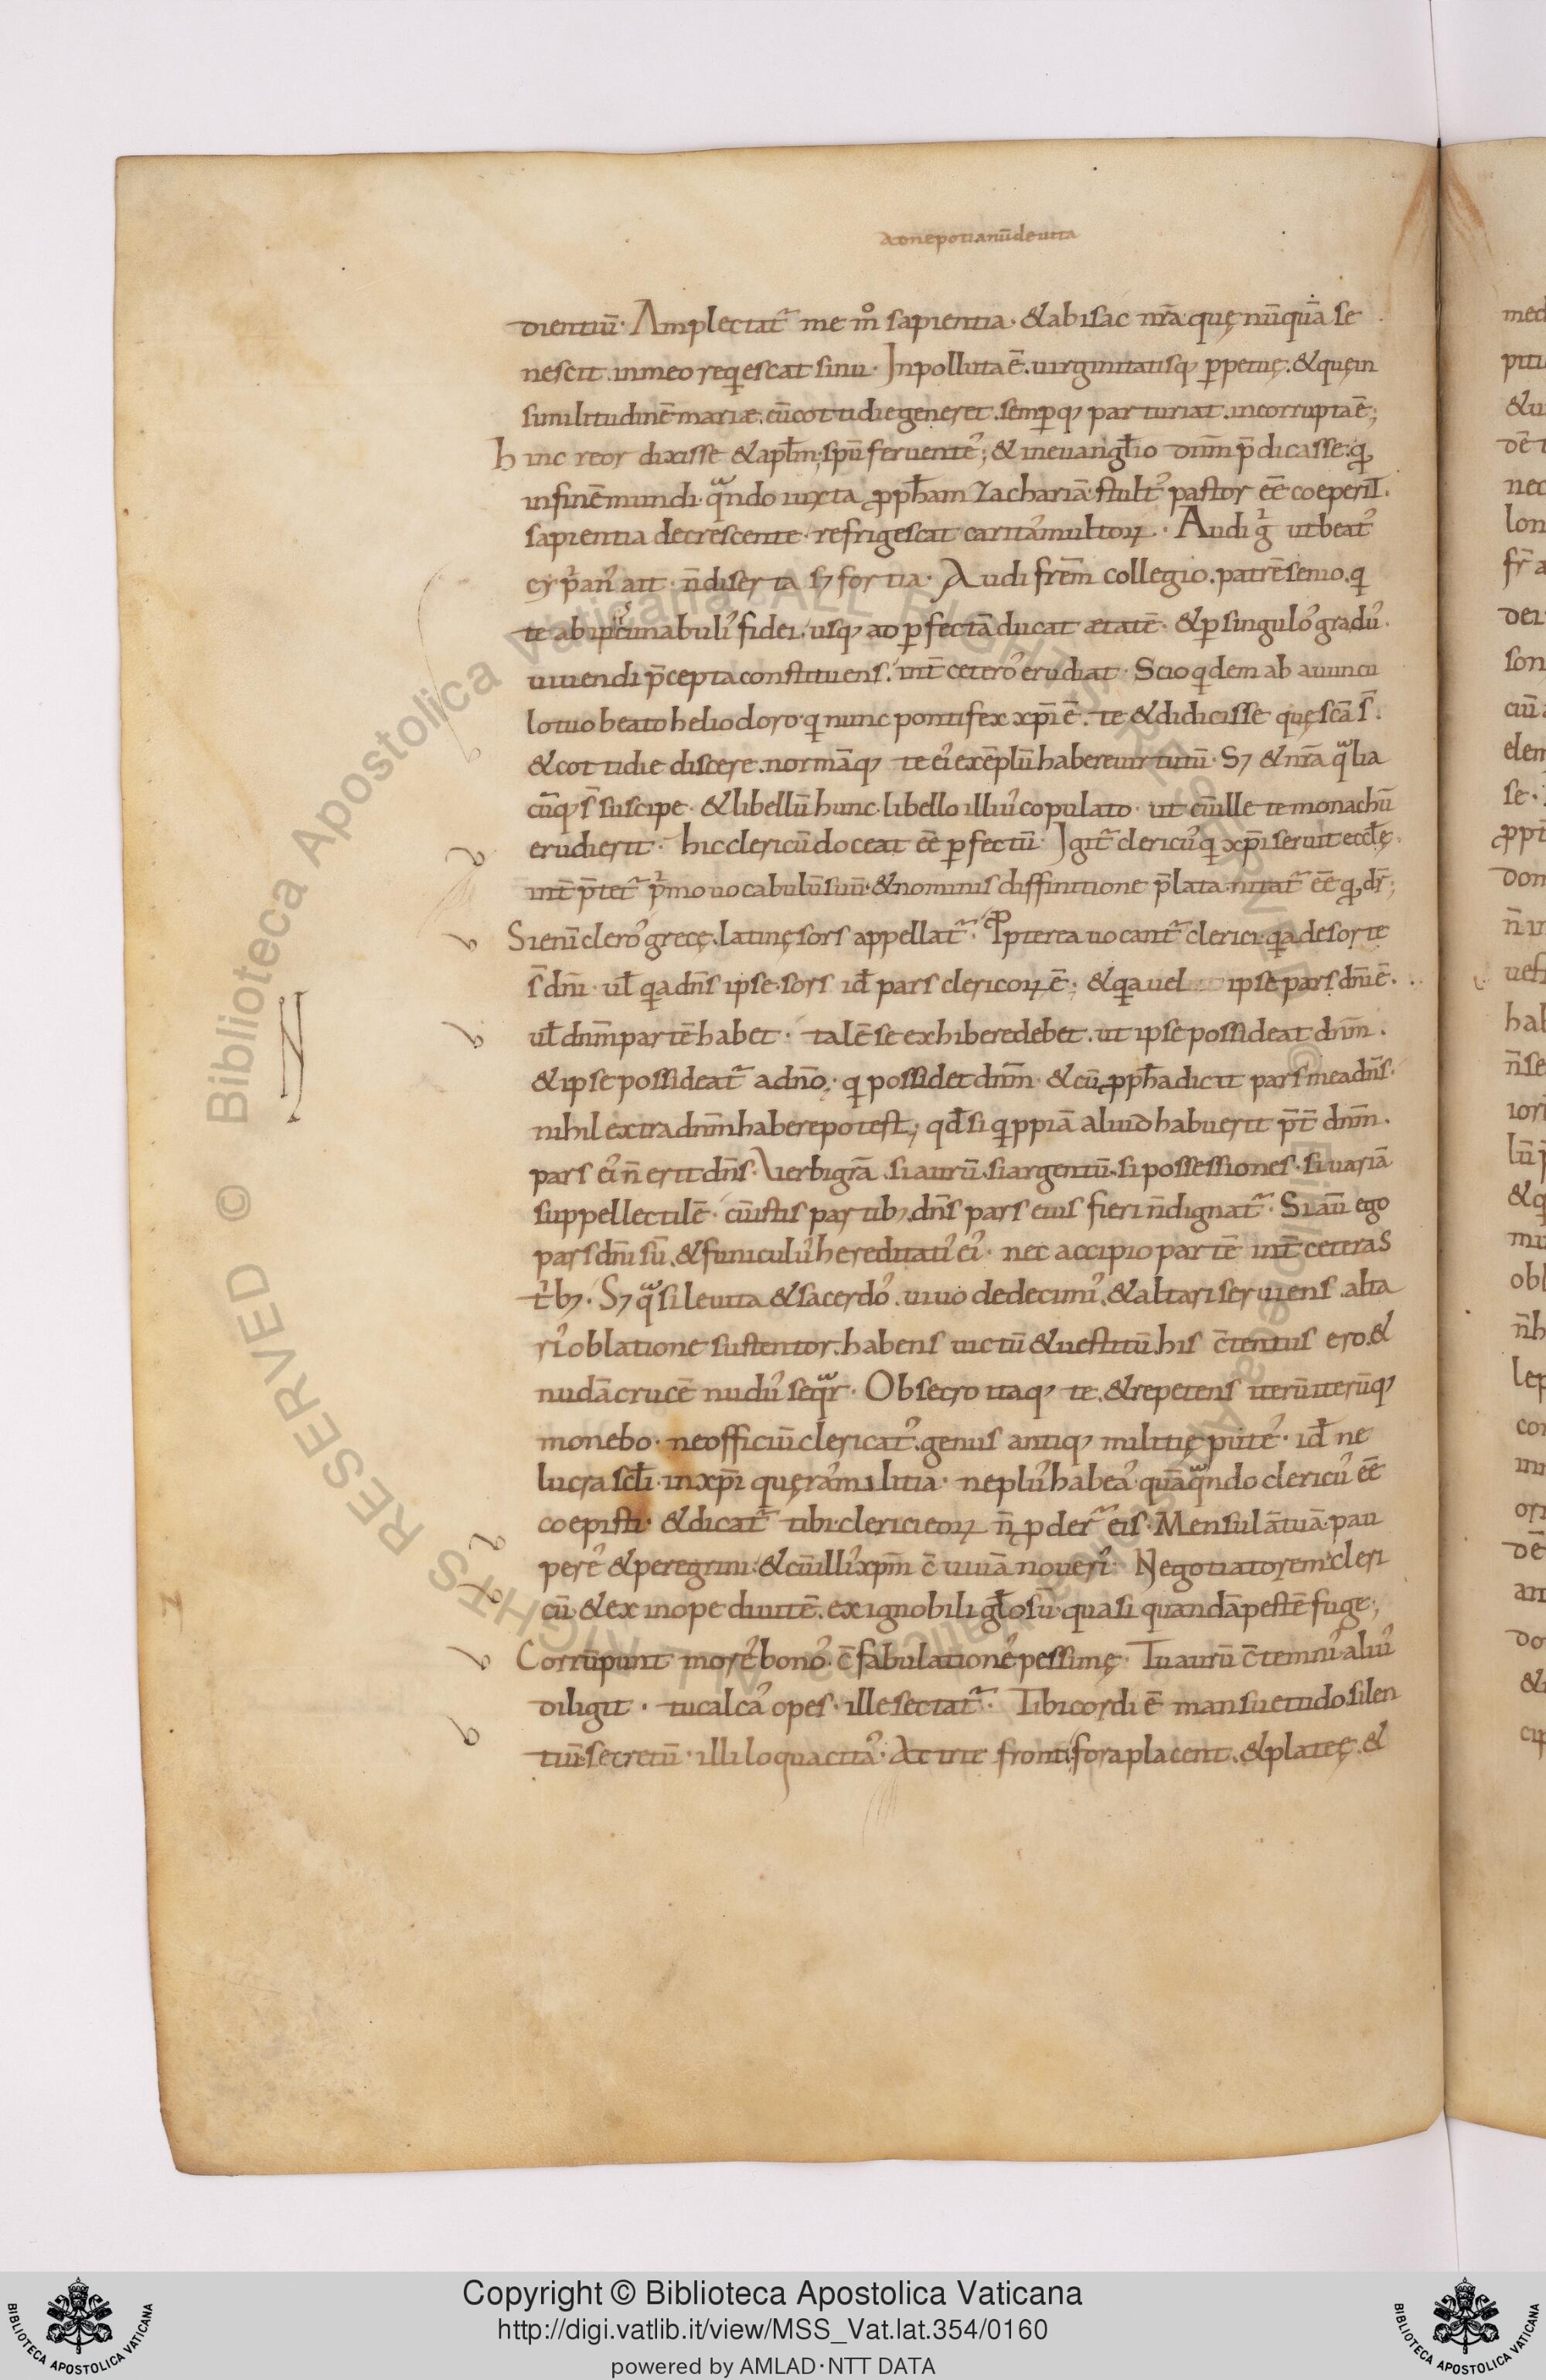 adnepotianū de uita
dientiū· Amplectat᷑ me m̊ sapientia· & abisac nr̄a quę nūquā se
nescit. in meo reqescat sinu· Inpolluta ē. uirginitatisq; ꝑpetuę. & quę in
similitudinē mariæ. cū cottidie generet. semꝑq; parturiat. incorrupta ē;
hinc reor dixisse & apl̄m· spū feruente᾽; & in euangl̄io dnm̄ p̄dicasse· ꝙ
in finē mundi· qͣndo iuxta ꝓph̄am Zachariā· stult᾽ pastor eē coeperit̄.
sapientia decrescente· refrigescat carita᾽ multoꝝ· Audi gͥ ut beat᾽
cypͥan᾽ ait· n̄ diserta s; fortia· Audi frēm collegio. patrē senio. q
te ab ipͥs cunabuli᾽ fidei· usq; ad ꝑfectā ducat ætatē· & ꝑ singulo᾽ gradu᾽.
uiuendi p̄cepta constituens. int̄ cetero᾽ erudiat· Scio qdem ab auuncu
lo tuo beato heliodoro· q nunc pontifex xp̄i ē. te & didicisse quę scā s̄.
& cottidie discere. normāq; te ei᾽ exēplū habere uirtutū· S; & nr̄a qͣlia
cūq; s̄ suscipe· & libellū hunc· libello illiu᾽ copulato· ut cū ille te monachū
erudierit· hic clericū doceat eē ꝑfectū· Igit᷑ clericu᾽ q xp̄i seruit eccl̄ę.
int̄p̄tet᷑ pͥmo uocabulū suū· & nominis diffinitione p̄lata· nitat᷑ eē qd dr̄;
Si enī clero᾽ grecę. latinę sors appellat᷑· Ꝓpterea uocant᷑ clerici· qa de sorte
s̄ dn̄i· ul̄ qa dn̄s ipse· sors id̄ pars clericoꝝ ē· & qa uel ipse pars dn̄i ē·
ul̄ dnm̄ partē habet· talē se exhibere debet. ut ipse possideat dnm̄.
& ipse possideat᷑ a dn̄o; q possidet dnm̄· & cū ꝓph̄a dicit pars mea dn̄s·
nihil extra dnm̄ habere potest; qd̄ si qppiā aliud habuerit p̄t̄ dnm̄.
pars ei᾽ n̄ erit dn̄s· Verbi grā. si aurū. si argentū. si possessiones· si uariā
suppellectilē· cū istis partib; dn̄s pars eius fieri n̄ dignat᷑· Si aū ego
pars dn̄i sū. & funiculu᾽ hereditati᾽ ei᾽· nec accipio partē int̄ ceteras
tͥb;· S; qͣsi leuita & sacerdo᾽. uiuo de decimi᾽. & altari seruiens. alta
ri᾽ oblatione sustentor. habens uictū & uestitū. his c̄tentus ero. &
nudā crucē nudu᾽ seqͣr· Obsecro itaq; te. & repetens iterū iterūq;
monebo· ne officiū clericat᾽. genus antiq; militię pute᾽· id̄ ne
lucra scl̄i· in xp̄i quęra᾽ militia· ne plu᾽ habea᾽ quā qͣndo clericu᾽ eē
coepisti· & dicat᷑ tibi· clerici eoꝝ n̄ ꝓder᷑ eis· Mensulā tuā· pau
pere᾽ & peregrini· & cū illi᾽ xpm̄ c̄uiuā noueri᾽· Negotiatorem cleri
cū· & ex inope diuitē. ex ignobili gl̄osū· quasi quandā pestē fuge;
Corrūpunt more᾽ bono᾽· c̄fabulatione᾽ pessimę· Tu aurū c̄temni᾽ aliu᾽
diligit· tu calca᾽ opes· ille sectat᷑· Tibi cordi ē mansuetudo silen
tiū· secretū· illi loquacita᾽· Attrite fronti᾽ fora placent. & plateę. &
Copyright © Biblioteca Apostolica Vaticana
http://digi.vatlib.it/view/MSS_Vat.lat.354/0160
powered by AMLAD·NTT DATA